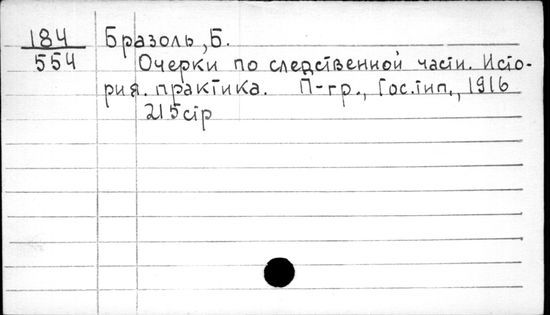 184 Бразоль, Б.
554 Очерки по следственной части. Исто-
рия. практика. П-гр., Гос.тип., 1916
215стр